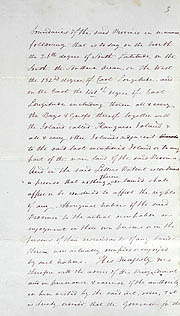 3
boundaries of the said Province in manner
following that is to say on the North
the 26th degree of South Latitude on the
South the Southern Ocean on the West
the 132nd degree of East Longitude and
on the East the 141st degree of East
Longitude including therein all & every
the Bays & Gulfs thereof together with
the Island called Kangaroo Island &
all & every other Islands adjacent
to the said last mentioned Island or to any
part of the main land of the said Province
And in the said Letters Patent
a proviso that nothing therein contained should
affect or be construed to affect the rights
of any Aboriginal natives of the said
Province to the actual occupation or
enjoyment in their own Persons or in the
Persons of their descendants of any lands
therein now actually occupied or enjoyed
by such natives His Majesty
therefore with the advice of His Privy Council
and in pursuance & exercise of the
in him vested by the said act
ordered that the Governor for the